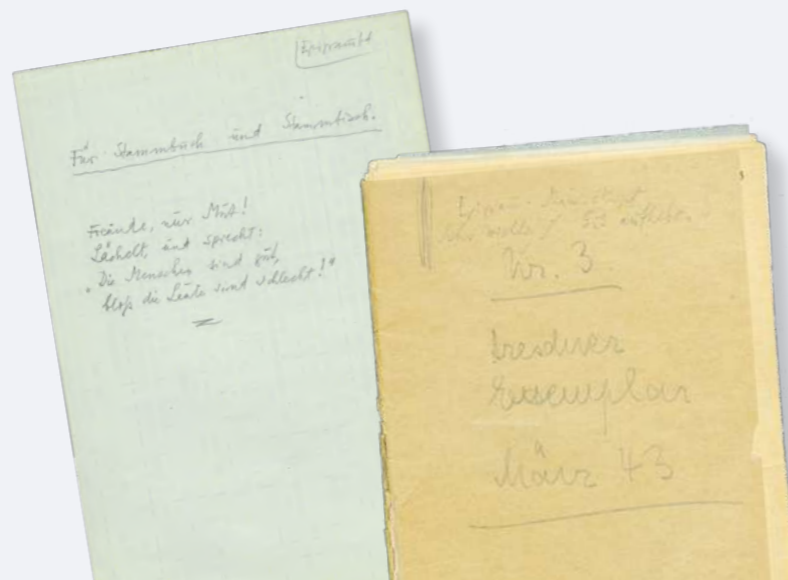 Epigramme
Für Stammbuch und Stammtisch.
Freunde, nur Mut!
Lächelt und sprecht:
"Die Menschen sind gut,
bloß die Leute sind schlecht!"
Nr. 3
Dresdner
Exemplar
März 43